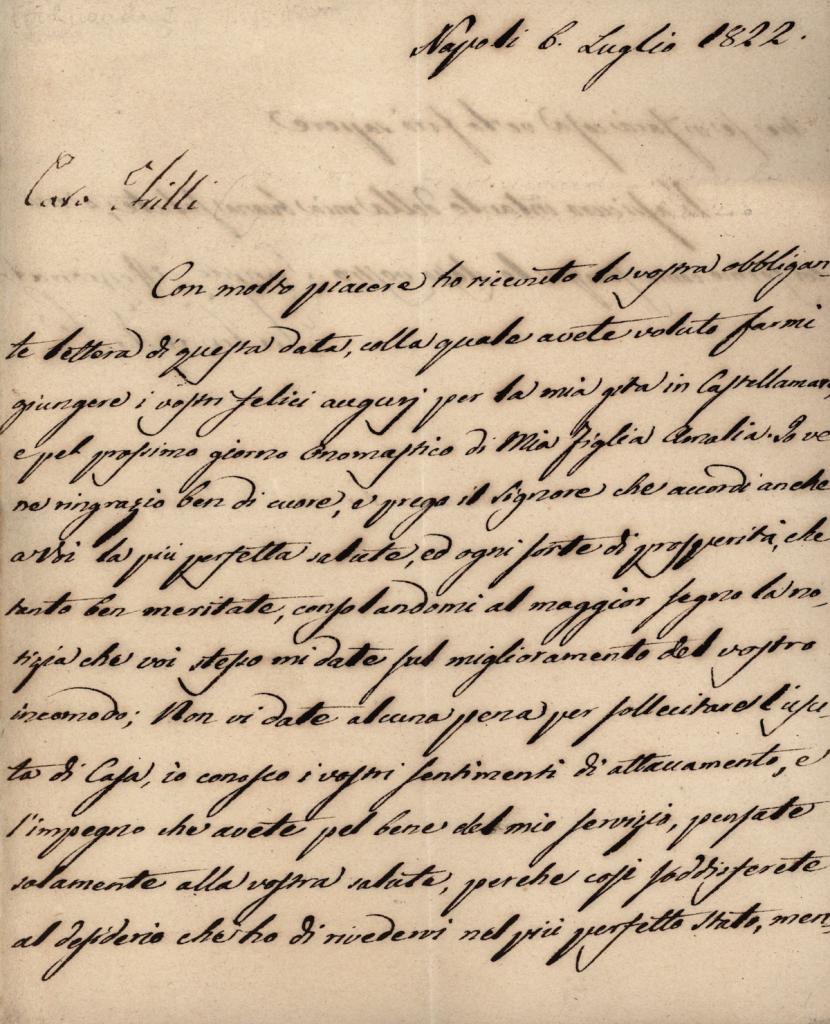 Napoli 6. Luglio 1822.
Caro Trilli
Con molto piacere ho ricevuto la vostra obbligan-
te lettera di questa data, colla quale avete voluto farmi
giungere i vostri felici augurj per la mia gita in Castellamare,
e pel prossimo giorno Onomastico di Mia Figlia Amalia. Io ve
ne ringrazio ben di cuore, e prego il Signore che accordi anche
a Voi la più perfetta salute, ed ogni sorte di prosperità, che
tanto ben meritate, consolandomi al maggior segno la no-
tizia che voi stesso mi date sul miglioramento del vostro
incomodo; Non vi date alcuna pena per sollecitare l'usci-
ta di Casa, io conosco i vostri sentimenti di attaccamento, e
l'impegno che avete pel bene del mio servizio, pensate
solamente alla vostra salute, perche così soddisferete
al desiderio che ho di rivedervi nel più perfetto stato, men-